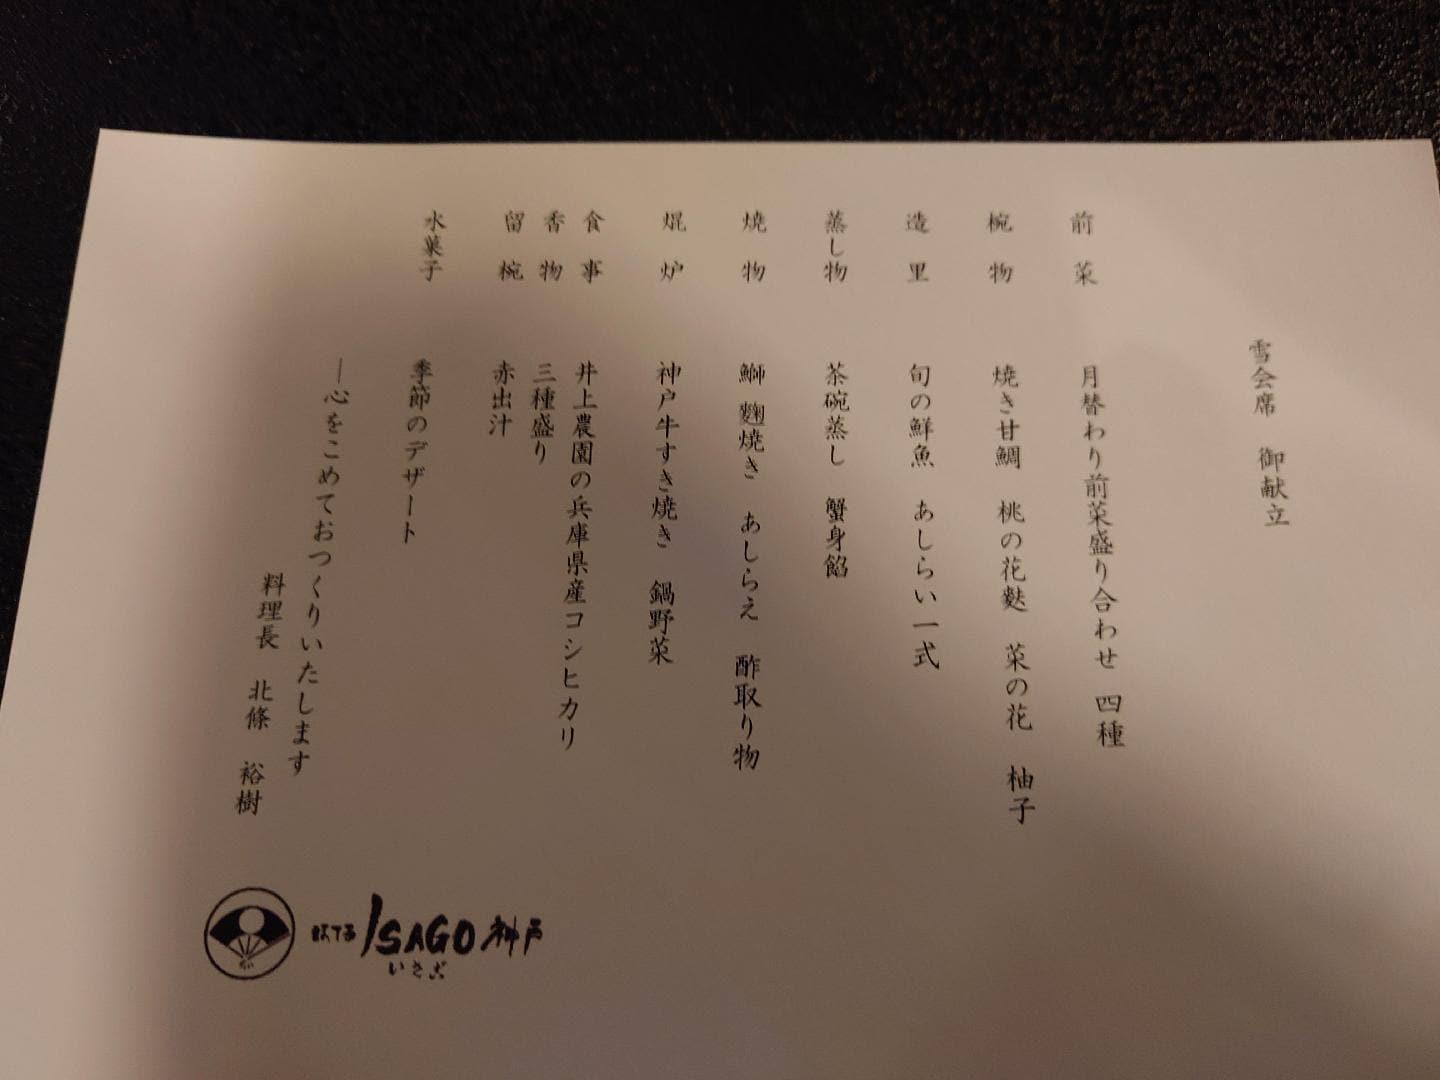 雪会席　御献立
前菜　月替わり前菜盛り合わせ　四種
椀物　焼き甘鯛　桃の花麩　菜の花　柚子
造里　旬の鮮魚　あしらい一式
蒸し物　茶碗蒸し　蟹身餡
焼物　鰤麴焼き　あしらえ　酢取り物
焜炉　神戸牛すき焼き　鍋野菜
食事　井上農園の兵庫県産コシヒカリ
香物　三種盛り
留椀　赤出汁
水菓子　季節のデザート
―心をこめておつくりいたします
料理長　北條　裕樹
ほてる ISAGO 神戸
いさご